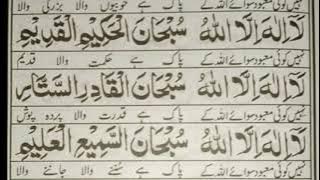 نہیں کوئی معبود سوائے اللہ کے پاک ہے خوبیوں والا بزرگی والا
لَا إِلٰهَ إِلَّا اللّٰهُ سُبْحَانَ الْحَكِيْمِ الْقَدِيْمِ
نہیں کوئی معبود سوائے اللہ کے پاک ہے حکمت والا قدیم
لَا إِلٰهَ إِلَّا اللّٰهُ سُبْحَانَ الْقَادِرِ السَّتَّارِ
نہیں کوئی معبود سوائے اللہ کے پاک ہے قدرت والا پردہ پوش
لَا إِلٰهَ إِلَّا اللّٰهُ سُبْحَانَ السَّمِيْعِ الْعَلِيْمِ
نہیں کوئی معبود سوائے اللہ کے پاک ہے سننے والا جاننے والا